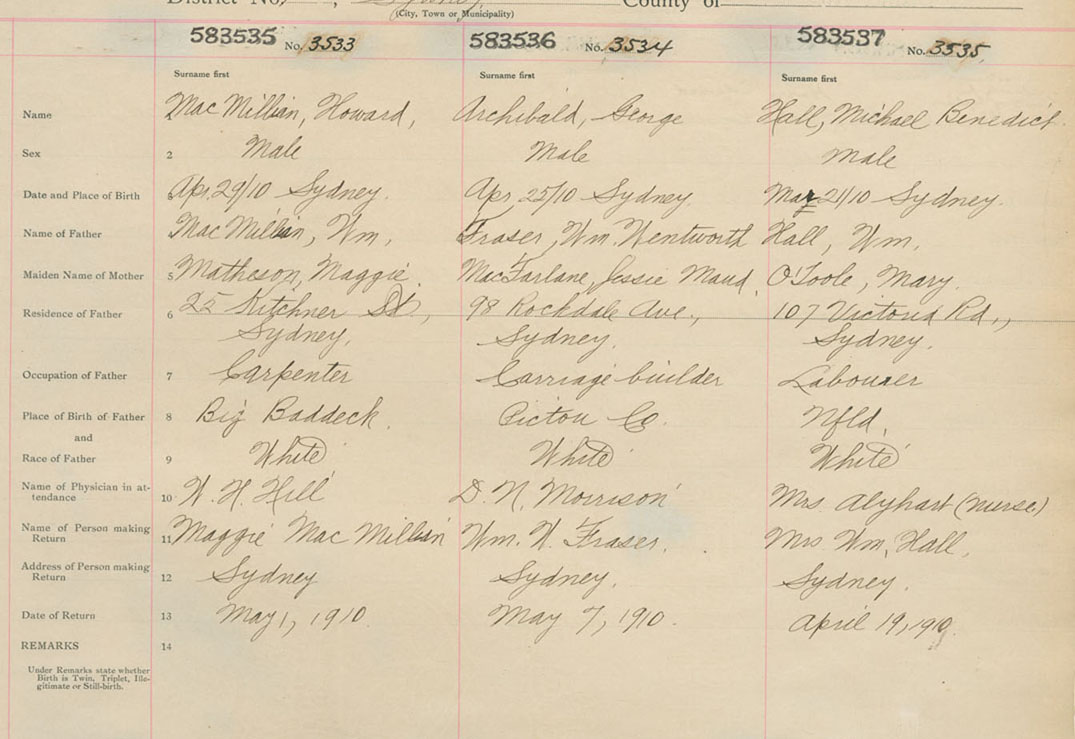 District No. , Sydney County of
(City, Town or Municipality)
583535 No. 3533 583536 No. 3534 583537 No. 3535
Surname first Surname first Surname first
Name Mac Millian, Howard, Archibald, George Hall, Michael Benedict
Sex 2 Male Male Male
Date and Place of Birth Apr. 29/10 Sydney. Apr. 25/10 Sydney. Mar 21/10 Sydney.
Name of Father MacMillian, Wm, Fraser, Wm. Wentworth Hall, Wm.
Maiden Name of Mother 5 Matheson, Maggie MacFarlane, Jessie Maud. O'Toole, Mary.
Residence of Father 6 25 Kitchner St, 98 Rockdale Ave., 107 Victoria Rd.,
Sydney, Sydney. Sydney.
Occupation of Father 7 Carpenter Carriage builder Labouer
Place of Birth of Father 8 Big Baddeck. Pictou Co. Nfld.
and
Race of Father 9 White White White
Name of Physician in at-
tendance 10 W. H. Hill D. N. Morrison Mrs (nurse)
Name of Person making
Return 11 Maggie Mac Millian Wm. W. Fraser. Mrs Wm. Hall,
Address of Person making
Return 12 Sydney Sydney. Sydney.
Date of Return 13 May 1, 1910. May 7, 1910. April 19, 1910.
REMARKS 14
Under Remarks state whether
Birth is Twin, Triplet, Ille-
gitimate or Still-birth.